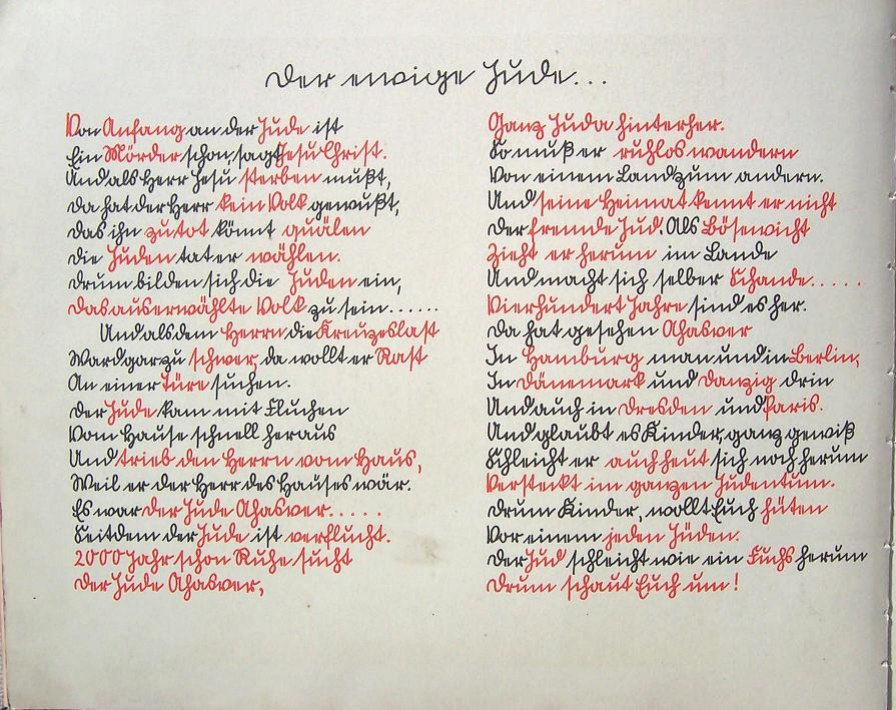 Der ewige Jude...
Von Anfang an der Jude ist
Ein Mörder schon, sagt Jesu Christ.
Und als Herr Jesu sterben mußt,
da hat der Herr kein Volk gewußt,
das ihn zu tot könnt quälen
die Juden tat er wählen.
drum bilden sich die Juden ein,
das auserwählte Volk zu sein......
Und als dem Herrn die Kreuzeslast
Ward gar zu schwer, da wollt er Rast
An einer Türe suchen.
der Jude kam mit Fluchen
Vom Hause schnell heraus
Und trieb den Herrn vom Haus,
Weil er der Herr des Hauses wär.
Es war der Jude Ahasver.....
Seitdem der Jude ist verflucht.
2000 Jahr schon Ruhe sucht
der Jude Ahasver,
Ganz Juda hinterher.
So muß er ruhlos wandern
Von einem Land zum andern.
Und seine Heimat kennt er nicht
der fremde Jud. Als Bösewicht
Zieht er herum im Lande
Und macht sich selber Schande.....
Vierhundert Jahre sind es her.
da hat gesehen Ahasver
In Hamburg man und in Berlin,
In Dänemark und Danzig drin
Und auch in Dresden und Paris.
Und glaubt es Kinder, ganz gewiß
Schleicht er auch heut sich noch herum
Versteckt im ganzen Judentum.
drum Kinder, wollt Euch hüten
Vor einem jeden Jüden.
der Jud schleicht wie ein Fuchs herum
drum schaut Euch um!